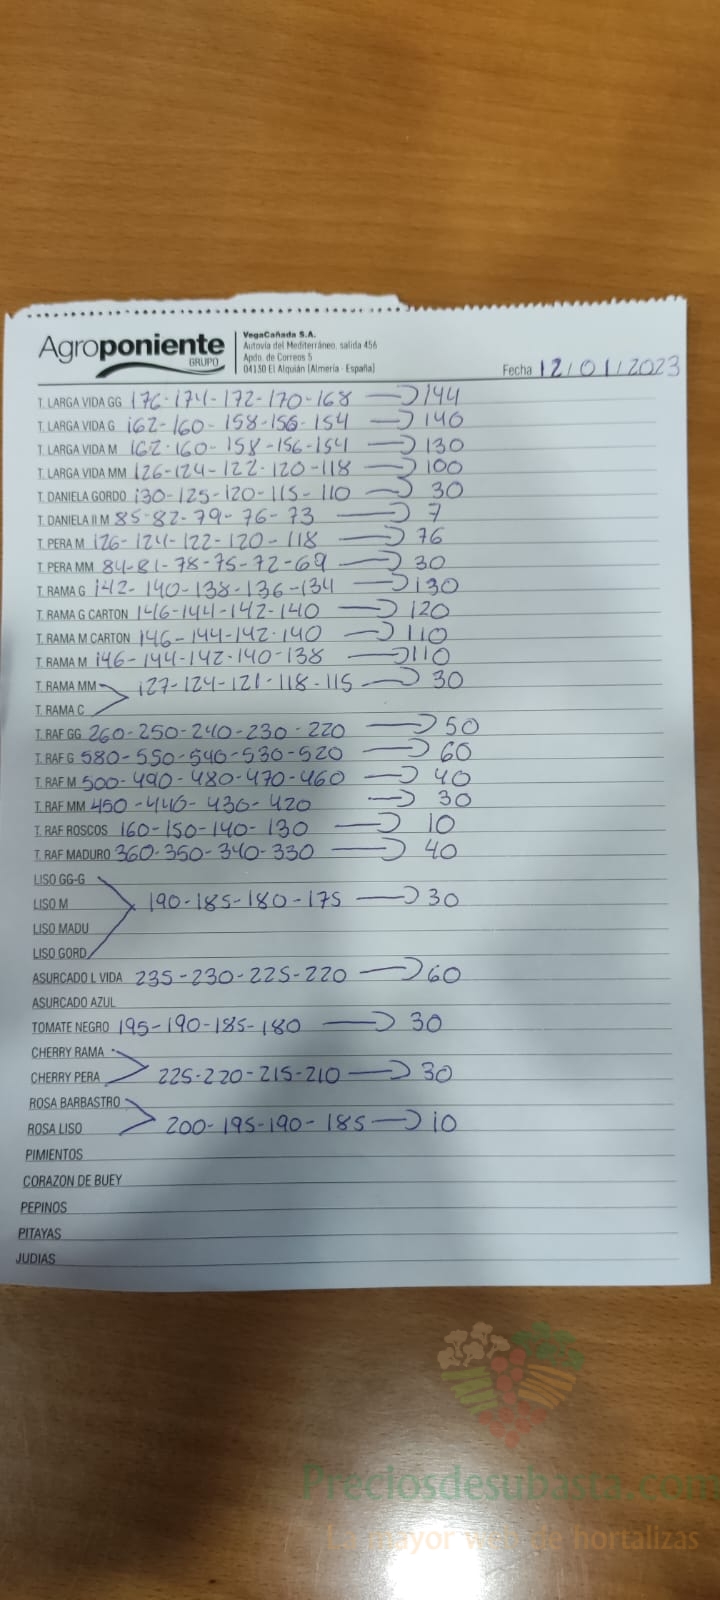 Agroponiente
GRUPO
VegaCañada S.A.
Autovía del Mediterráneo, salida 456
Apdo. de Correos 5
04130 El Alquián (Almería - España)
Fecha 12/01/2023
T. LARGA VIDA GG 176-174-172-170-168 → 144
T. LARGA VIDA G 162-160-158-156-154 → 140
T. LARGA VIDA M 162-160-158-156-154 → 130
T. LARGA VIDA MM 126-124-122-120-118 → 100
T. DANIELA GORDO 130-125-120-115-110 → 30
T. DANIELA II M 85-82-79-76-73 → 7
T. PERA M 126-124-122-120-118 → 76
T. PERA MM 84-81-78-75-72-69 → 30
T. RAMA G 142-140-138-136-134 → 130
T. RAMA G CARTON 146-144-142-140 → 120
T. RAMA M CARTON 146-144-142-140 → 110
T. RAMA M 146-144-142-140-138 → 110
T. RAMA MM 127-124-121-118-115 → 30
T. RAMA C
T. RAF GG 260-250-240-230-220 → 50
T. RAF G 580-550-540-530-520 → 60
T. RAF M 500-490-480-470-460 → 40
T. RAF MM 450-440-430-420 → 30
T. RAF ROSCOS 160-150-140-130 → 10
T. RAF MADURO 360-350-340-330 → 40
LISO GG-G
LISO M 190-185-180-175 → 30
LISO MADU
LISO GORD
ASURCADO L VIDA 235-230-225-220 → 60
ASURCADO AZUL
TOMATE NEGRO 195-190-185-180 → 30
CHERRY RAMA
CHERRY PERA 225-220-215-210 → 30
ROSA BARBASTRO
ROSA LISO 200-195-190-185 → 10
PIMIENTOS
CORAZON DE BUEY
PEPINOS
PITAYAS
JUDIAS
Preciosdesubasta.com
La mayor web de hortalizas